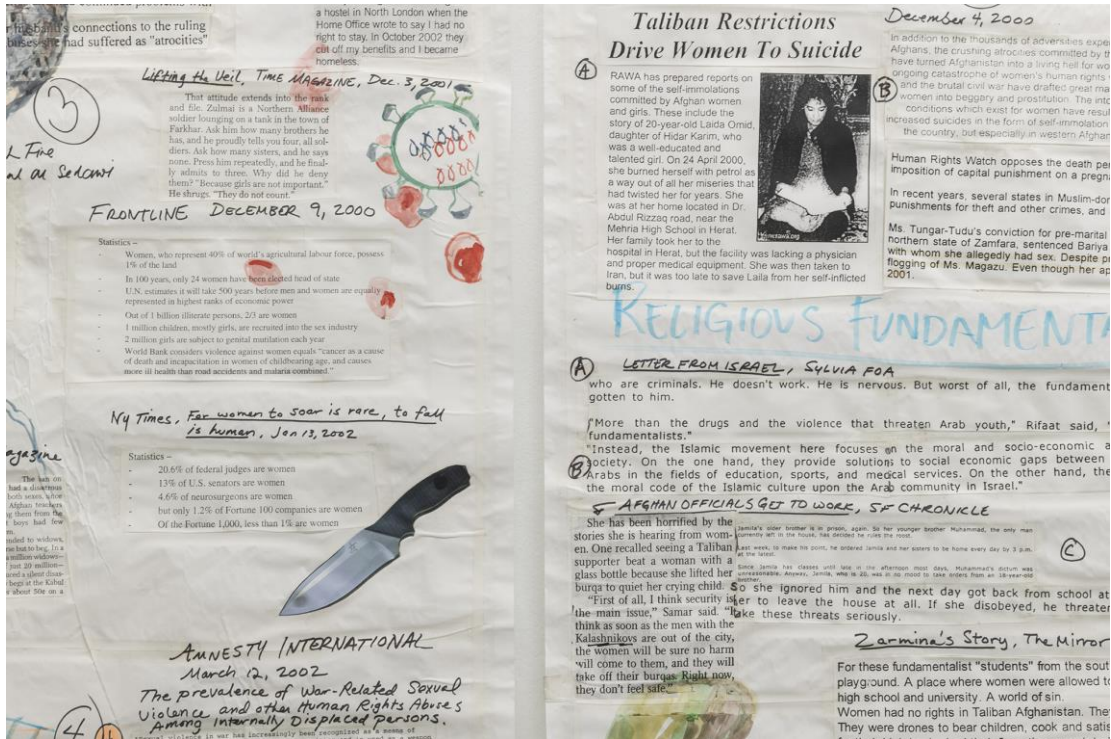 husband's connections to the ruling
she had suffered as "atrocities"
a hostel in North London when the
Home Office wrote to say I had no
right to stay. In October 2002 they
cut off my benefits and I became
homeless.
Lifting the Veil, TIME MAGAZINE, Dec. 3, 2001
3
That attitude extends into the rank
and file. Zulmai is a Northern Alliance
soldier lounging on a tank in the town of
Farkhar. Ask him how many brothers he
has, and he proudly tells you four, all sol-
diers. Ask how many sisters, and he says
none. Press him repeatedly, and he final-
ly admits to three. Why did he deny
them? "Because girls are not important."
He shrugs. "They do not count."
FRONTLINE DECEMBER 9, 2000
Statistics –
- Women, who represent 40% of world's agricultural labour force, possess
1% of the land
- In 100 years, only 24 women have been elected head of state
- U.N. estimates it will take 500 years before men and women are equally
represented in highest ranks of economic power
- Out of 1 billion illiterate persons, 2/3 are women
- 1 million children, mostly girls, are recruited into the sex industry
- 2 million girls are subject to genital mutilation each year
World Bank considers violence against women equals "cancer as a cause
of death and incapacitation in women of childbearing age, and causes
more ill health than road accidents and malaria combined."
NY Times, For women to soar is rare, to fall
is human, Jan 13, 2002
Statistics –
- 20.6% of federal judges are women
- 13% of U.S. senators are women
- 4.6% of neurosurgeons are women
- but only 1.2% of Fortune 100 companies are women
- Of the Fortune 1,000, less than 1% are women
The ban on
had a disastrous
both sexes, since
Afghan teachers
t boys had few
just 20 million
begs at the Kabul
r about 50¢ on a
AMNESTY INTERNATIONAL
March 12, 2002
The prevalence of War-Related Sexual
Violence and other Human Rights Abuses
Among Internally Displaced Persons.
4
violence in war has increasingly been recognized as a means of
Taliban Restrictions
Drive Women To Suicide
A
RAWA has prepared reports on
some of the self-immolations
committed by Afghan women
and girls. These include the
story of 20-year-old Laida Omid,
daughter of Hidar Karim, who
was a well-educated and
talented girl. On 24 April 2000,
she burned herself with petrol as
a way out of all her miseries that
had twisted her for years. She
was at her home located in Dr.
Abdul Rizzaq road, near the
Mehria High School in Herat.
Her family took her to the
hospital in Herat, but the facility was lacking a physician
and proper medical equipment. She was then taken to
Iran, but it was too late to save Laila from her self-inflicted
burns.
December 4, 2000
In addition to the thousands of adversities
Afghans, the crushing atrocities committed by
have turned Afghanistan into a living hell for
ongoing catastrophe of women's human rights
B
and the brutal civil war have drafted great
women into beggary and prostitution. The
conditions which exist for women have
increased suicides in the form of self-immolation
the country, but especially in western
Human Rights Watch opposes the death
imposition of capital punishment on a
In recent years, several states in
punishments for theft and other crimes, and
Ms. Tungar-Tudu's conviction for pre-marital
northern state of Zamfara, sentenced Bariya
with whom she allegedly had sex. Despite
flogging of Ms. Magazu. Even though her
2001.
RELIGIOUS
A
LETTER FROM ISRAEL, SYLVIA FOA
who are criminals. He doesn't work. He is nervous. But worst of all, the
gotten to him.
"More than the drugs and the violence that threaten Arab youth," Rifaat said,
fundamentalists."
"Instead, the Islamic movement here focuses on the moral and socio-economic
B
society. On the one hand, they provide solutions to social economic gaps between
Arabs in the fields of education, sports, and medical services. On the other hand,
the moral code of the Islamic culture upon the Arab community in Israel."
AFGHAN OFFICIALS GET TO WORK, SF CHRONICLE
She has been horrified by the
stories she is hearing from wom-
en. One recalled seeing a Taliban
supporter beat a woman with a
glass bottle because she lifted her
burqa to quiet her crying child.
"First of all, I think security is
the main issue," Samar said. "I
think as soon as the men with the
Kalashnikovs are out of the city,
the women will be sure no harm
will come to them, and they will
take off their burqas. Right now,
they don't feel safe."
Jamila's older brother is in prison, again. So her younger brother Muhammad, the only man
currently left in the house, has decided he rules the roost.
Last week, to make his point, he ordered Jamila and her sisters to be home every day by 3 p.m.
at the latest.
Since Jamila has classes until late in the afternoon most days, Muhammad's dictum was
unreasonable. Anyway, Jamila, who is 20, was in no mood to take orders from an 18-year-old
brother.
C
So she ignored him and the next day got back from school at
her to leave the house at all. If she disobeyed, he
take these threats seriously.
Zarmina's Story, The Mirror
For these fundamentalist "students" from the
playground. A place where women were allowed
high school and university. A world of sin.
Women had no rights in Taliban Afghanistan.
They were drones to bear children, cook and